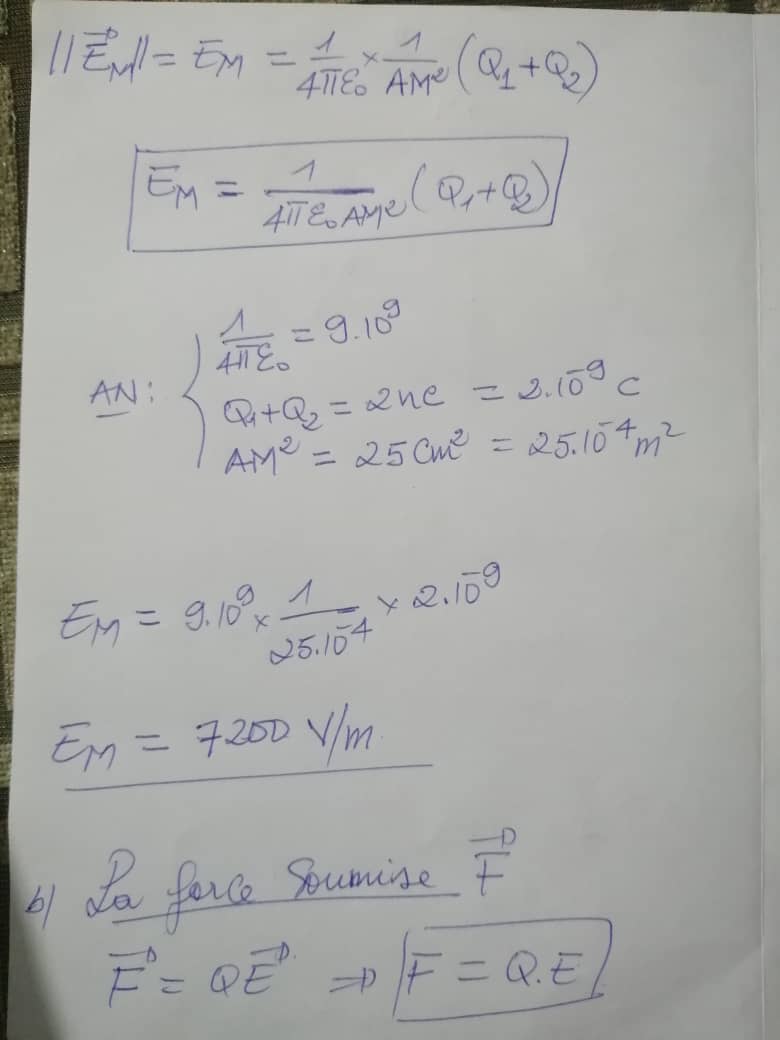 ||E⃗_M|| = E_M = 1/4πε₀ × 1/AM² (Q₁+Q₂)
E_M = 1/4πε₀AM² (Q₁+Q₂)
1/4πε₀ = 9.10⁹
AN : Q₁+Q₂ = 2nc = 2.10⁻⁹ c
AM² = 25 Cm² = 25.10⁻⁴ m²
E_M = 9.10⁹ × 1/25.10⁻⁴ × 2.10⁻⁹
E_M = 7200 V/m
b) La force Soumise F⃗
F⃗ = QE⃗ ⇒ F = Q.E